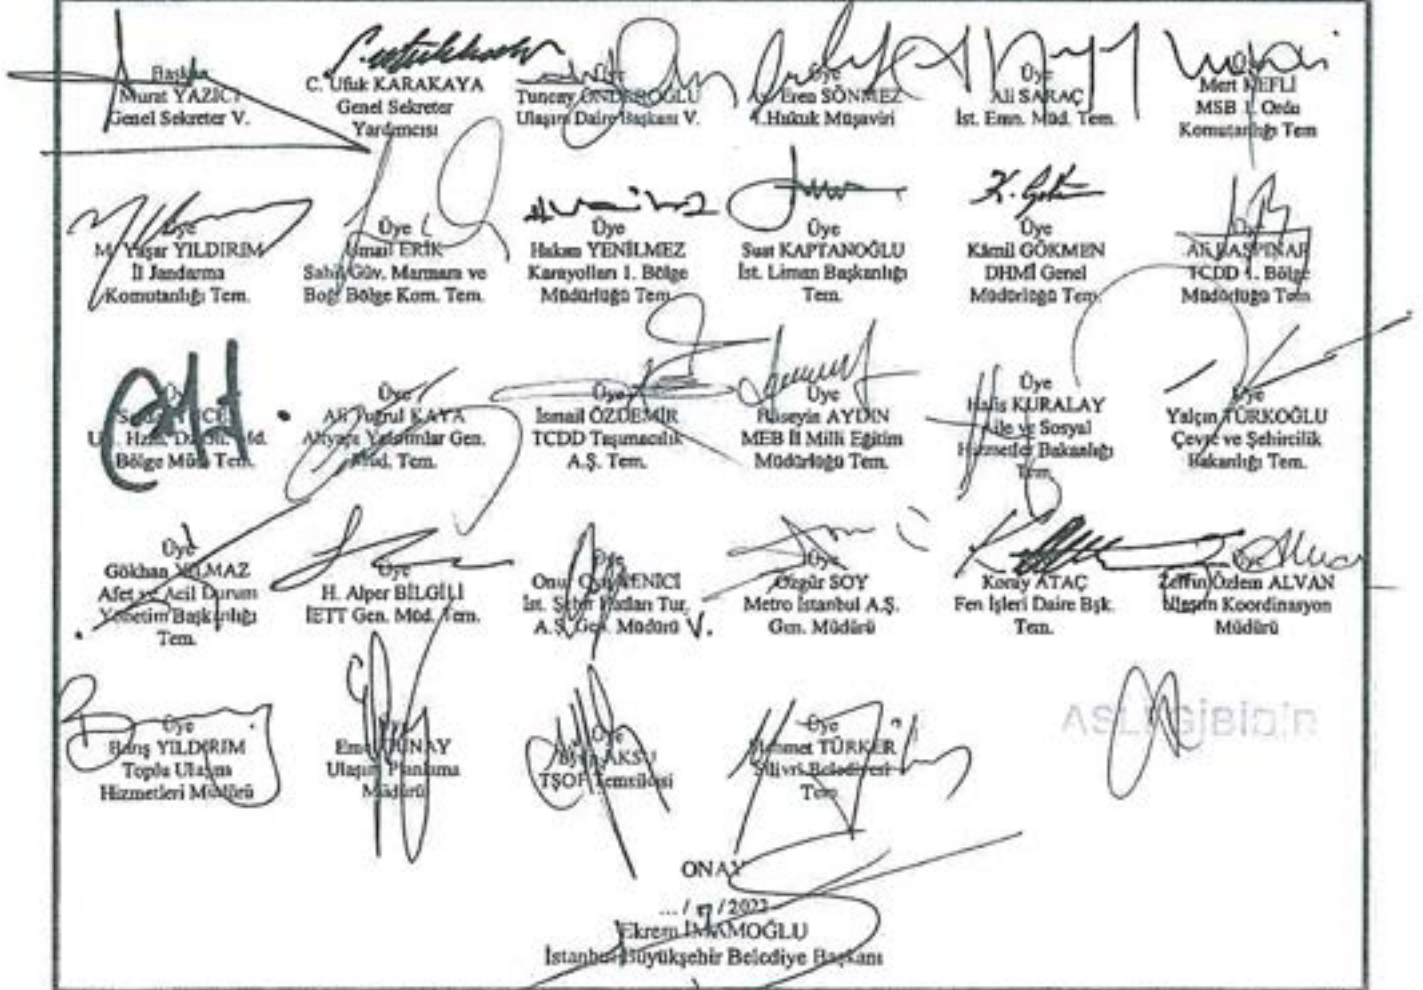 Başkan
Murat YAZICI
Genel Sekreter V.
C. Ufuk KARAKAYA
Genel Sekreter
Yardımcısı
Üye
Tuncay ÖNDEROĞLU
Ulaşım Daire Başkanı V.
Üye
Av. Eren SÖNMEZ
1.Hukuk Müşaviri
Üye
Ali SARAÇ
İst. Emn. Müd. Tem.
Mert NEFLİ
MSB 1. Ordu
Komutanlığı Tem
Üye
M. Yaşar YILDIRIM
İl Jandarma
Komutanlığı Tem.
Üye
İsmail ERİK
Sahil Güv. Marmara ve
Boğ. Bölge Kom. Tem.
Üye
Hakan YENİLMEZ
Karayolları 1. Bölge
Müdürlüğü Tem.
Üye
Suat KAPTANOĞLU
İst. Liman Başkanlığı
Tem.
Üye
Kâmil GÖKMEN
DHMİ Genel
Müdürlüğü Tem.
Ali BAŞPINAR
TCDD 1. Bölge
Müdürlüğü Tem
Bölge Müd. Tem.
Üye
Ali Tuğrul KAYA
Altyapı Yatırımlar Gen.
Müd. Tem.
Üye
İsmail ÖZDEMİR
TCDD Taşımacılık
A.Ş. Tem.
Üye
Hüseyin AYDIN
MEB İl Milli Eğitim
Müdürlüğü Tem.
Üye
Halis KURALAY
Aile ve Sosyal
Hizmetler Bakanlığı
Tem.
Üye
Yalçın TÜRKOĞLU
Çevre ve Şehircilik
Bakanlığı Tem.
Üye
Gökhan YILMAZ
Afet ve Acil Durum
Yönetim Başkanlığı
Tem.
Üye
H. Alper BİLGİLİ
İETT Gen. Müd. Tem.
Üye
Onur YENİCİ
İst. Şehir Hatları Tur.
A.Ş. Gen. Müdürü V.
Üye
Özgür SOY
Metro İstanbul A.Ş.
Gen. Müdürü
Koray ATAÇ
Fen İşleri Daire Bşk.
Tem.
Üye
Özlem ALVAN
Ulaşım Koordinasyon
Müdürü
Üye
Barış YILDIRIM
Toplu Ulaşım
Hizmetleri Müdürü
GÜNAY
Ulaşım Planlama
Müdürü
Üye
AKSU
TŞOF Temsilcisi
Üye
Mehmet TÜRKER
Silivri Belediyesi
Tem
ASLI GİBİDİR
ONAY
... / 7 / 2022
Ekrem İMAMOĞLU
İstanbul Büyükşehir Belediye Başkanı